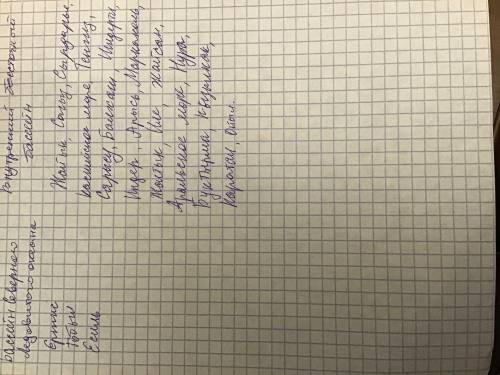 Бассейн Северного
Ледовитого океана
Ертис
Тобыл
Есиль
Внутренний бессточный
бассейн
Жайык, Сагыз, Сырдарья,
Каспийское море, Тенгиз,
Сарысу, Балхаш, Шидерты,
Индер, Арысь, Маркаколь,
Жайык, Иле, Жайсан,
Аральское море, Нура,
Буктырма, Кызылкак,
Каратал, Ойыл.